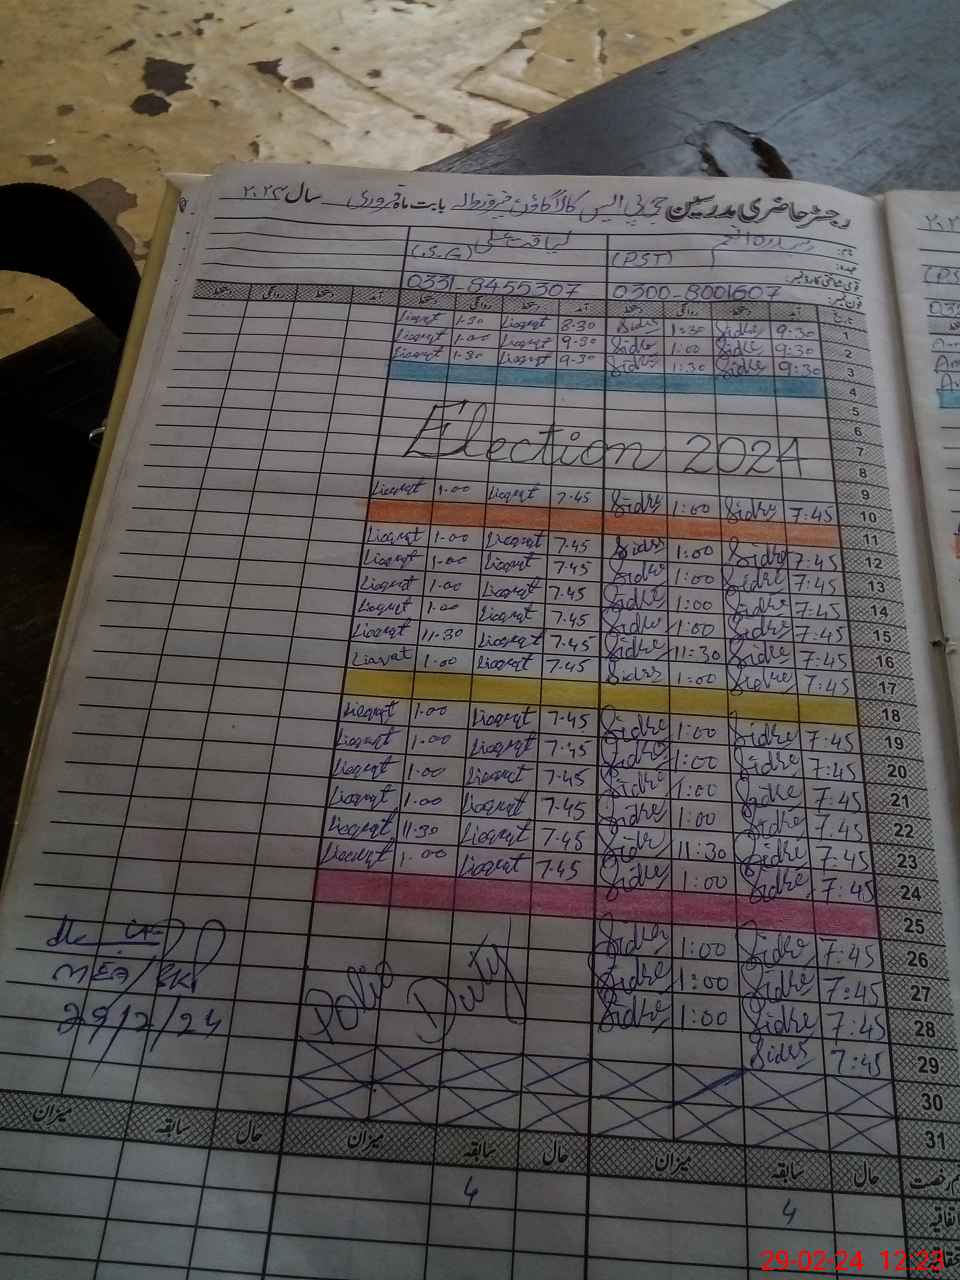 رجسٹر حاضری مدرسین جی پی ایس کالا گاؤں فیروزوالہ بابت ماہ فروری سال ۲۰۲۴
نام:
لیاقت علی
عہدہ:
(PST) (S.G)
قومی شناختی کارڈ نمبر:
فون نمبر: 0300-8001607 0331-8455307
تاریخ آمد دستخط روانگی دستخط آمد دستخط روانگی دستخط آمد دستخط روانگی دستخط
Liaqat 1-30 Liaqat 8-30 Sidre 1:30 Sidre 9:30 1
Liaqat 1-00 Liaqat 9-30 Sidre 1:00 Sidre 9:30 2
Liaqat 1-30 Liaqat 9-30 Sidre 1:30 Sidre 9:30 3
4
5
6
Election 2024 7
8
Liaqat 1-00 Liaqat 7-45 Sidre 1:00 Sidre 7:45 9
10
11
Liaqat 1-00 Liaqat 7-45 Sidre 1:00 Sidre 7:45 12
Liaqat 1-00 Liaqat 7-45 Sidre 1:00 Sidre 7:45 13
Liaqat 1-00 Liaqat 7-45 Sidre 1:00 Sidre 7:45 14
Liaqat 1-00 Liaqat 7-45 Sidre 1:00 Sidre 7:45 15
Liaqat 11-30 Liaqat 7-45 Sidre 11:30 Sidre 7:45 16
Liaqat 1-00 Liaqat 7-45 Sidre 1:00 Sidre 7:45 17
18
Liaqat 1-00 Liaqat 7-45 Sidre 1:00 Sidre 7:45 19
Liaqat 1-00 Liaqat 7-45 Sidre 1:00 Sidre 7:45 20
Liaqat 1-00 Liaqat 7-45 Sidre 1:00 Sidre 7:45 21
Liaqat 1-00 Liaqat 7-45 Sidre 1:00 Sidre 7:45 22
Liaqat 11-30 Liaqat 7-45 Sidre 11:30 Sidre 7:45 23
Liaqat 1-00 Liaqat 7-45 Sidre 1:00 Sidre 7:45 24
25
Sidre 1:00 Sidre 7:45 26
Polio Duty Sidre 1:00 Sidre 7:45 27
Sidre 1:00 Sidre 7:45 28
Sidre 7:45 29
30
31
MEA
29/2/24
حال سابقہ میزان حال سابقہ میزان حال سابقہ میزان
رخصت
اتفاقیہ 4 4
29-02-24 12:23